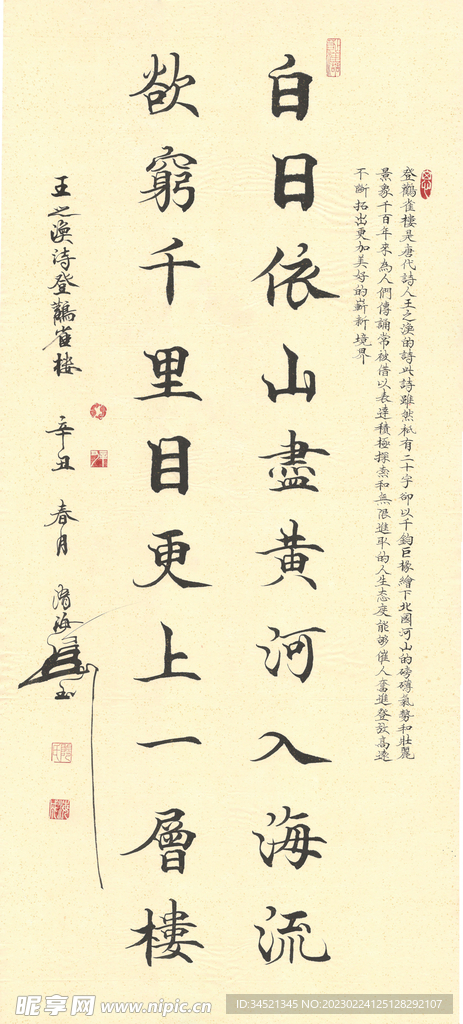 登鸛雀樓是唐代詩人王之渙的詩此詩雖然祗有二十字卻以千鈞巨椽繪下北國河山的磅礴氣勢和壯麗
景象千百年來為人們傳誦常被借以表達積極探索和無限進取的人生态度能够催人奮進登放高遠
不斷拓出更加美好的嶄新境界
白日依山盡黃河入海流
欲窮千里目更上一層樓
王之渙詩登鸛雀樓 辛丑 春月
昵享网 www.nipic.cn
ID:34521345 NO:20230224125128292107